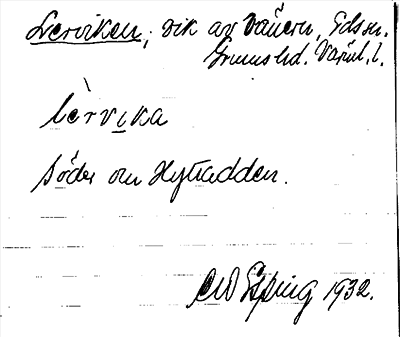 Lerviken, vik av Vänern, Eds sn.
Grums hd. Värml. l.
lèrvika
söder om Hyttudden.
1932.